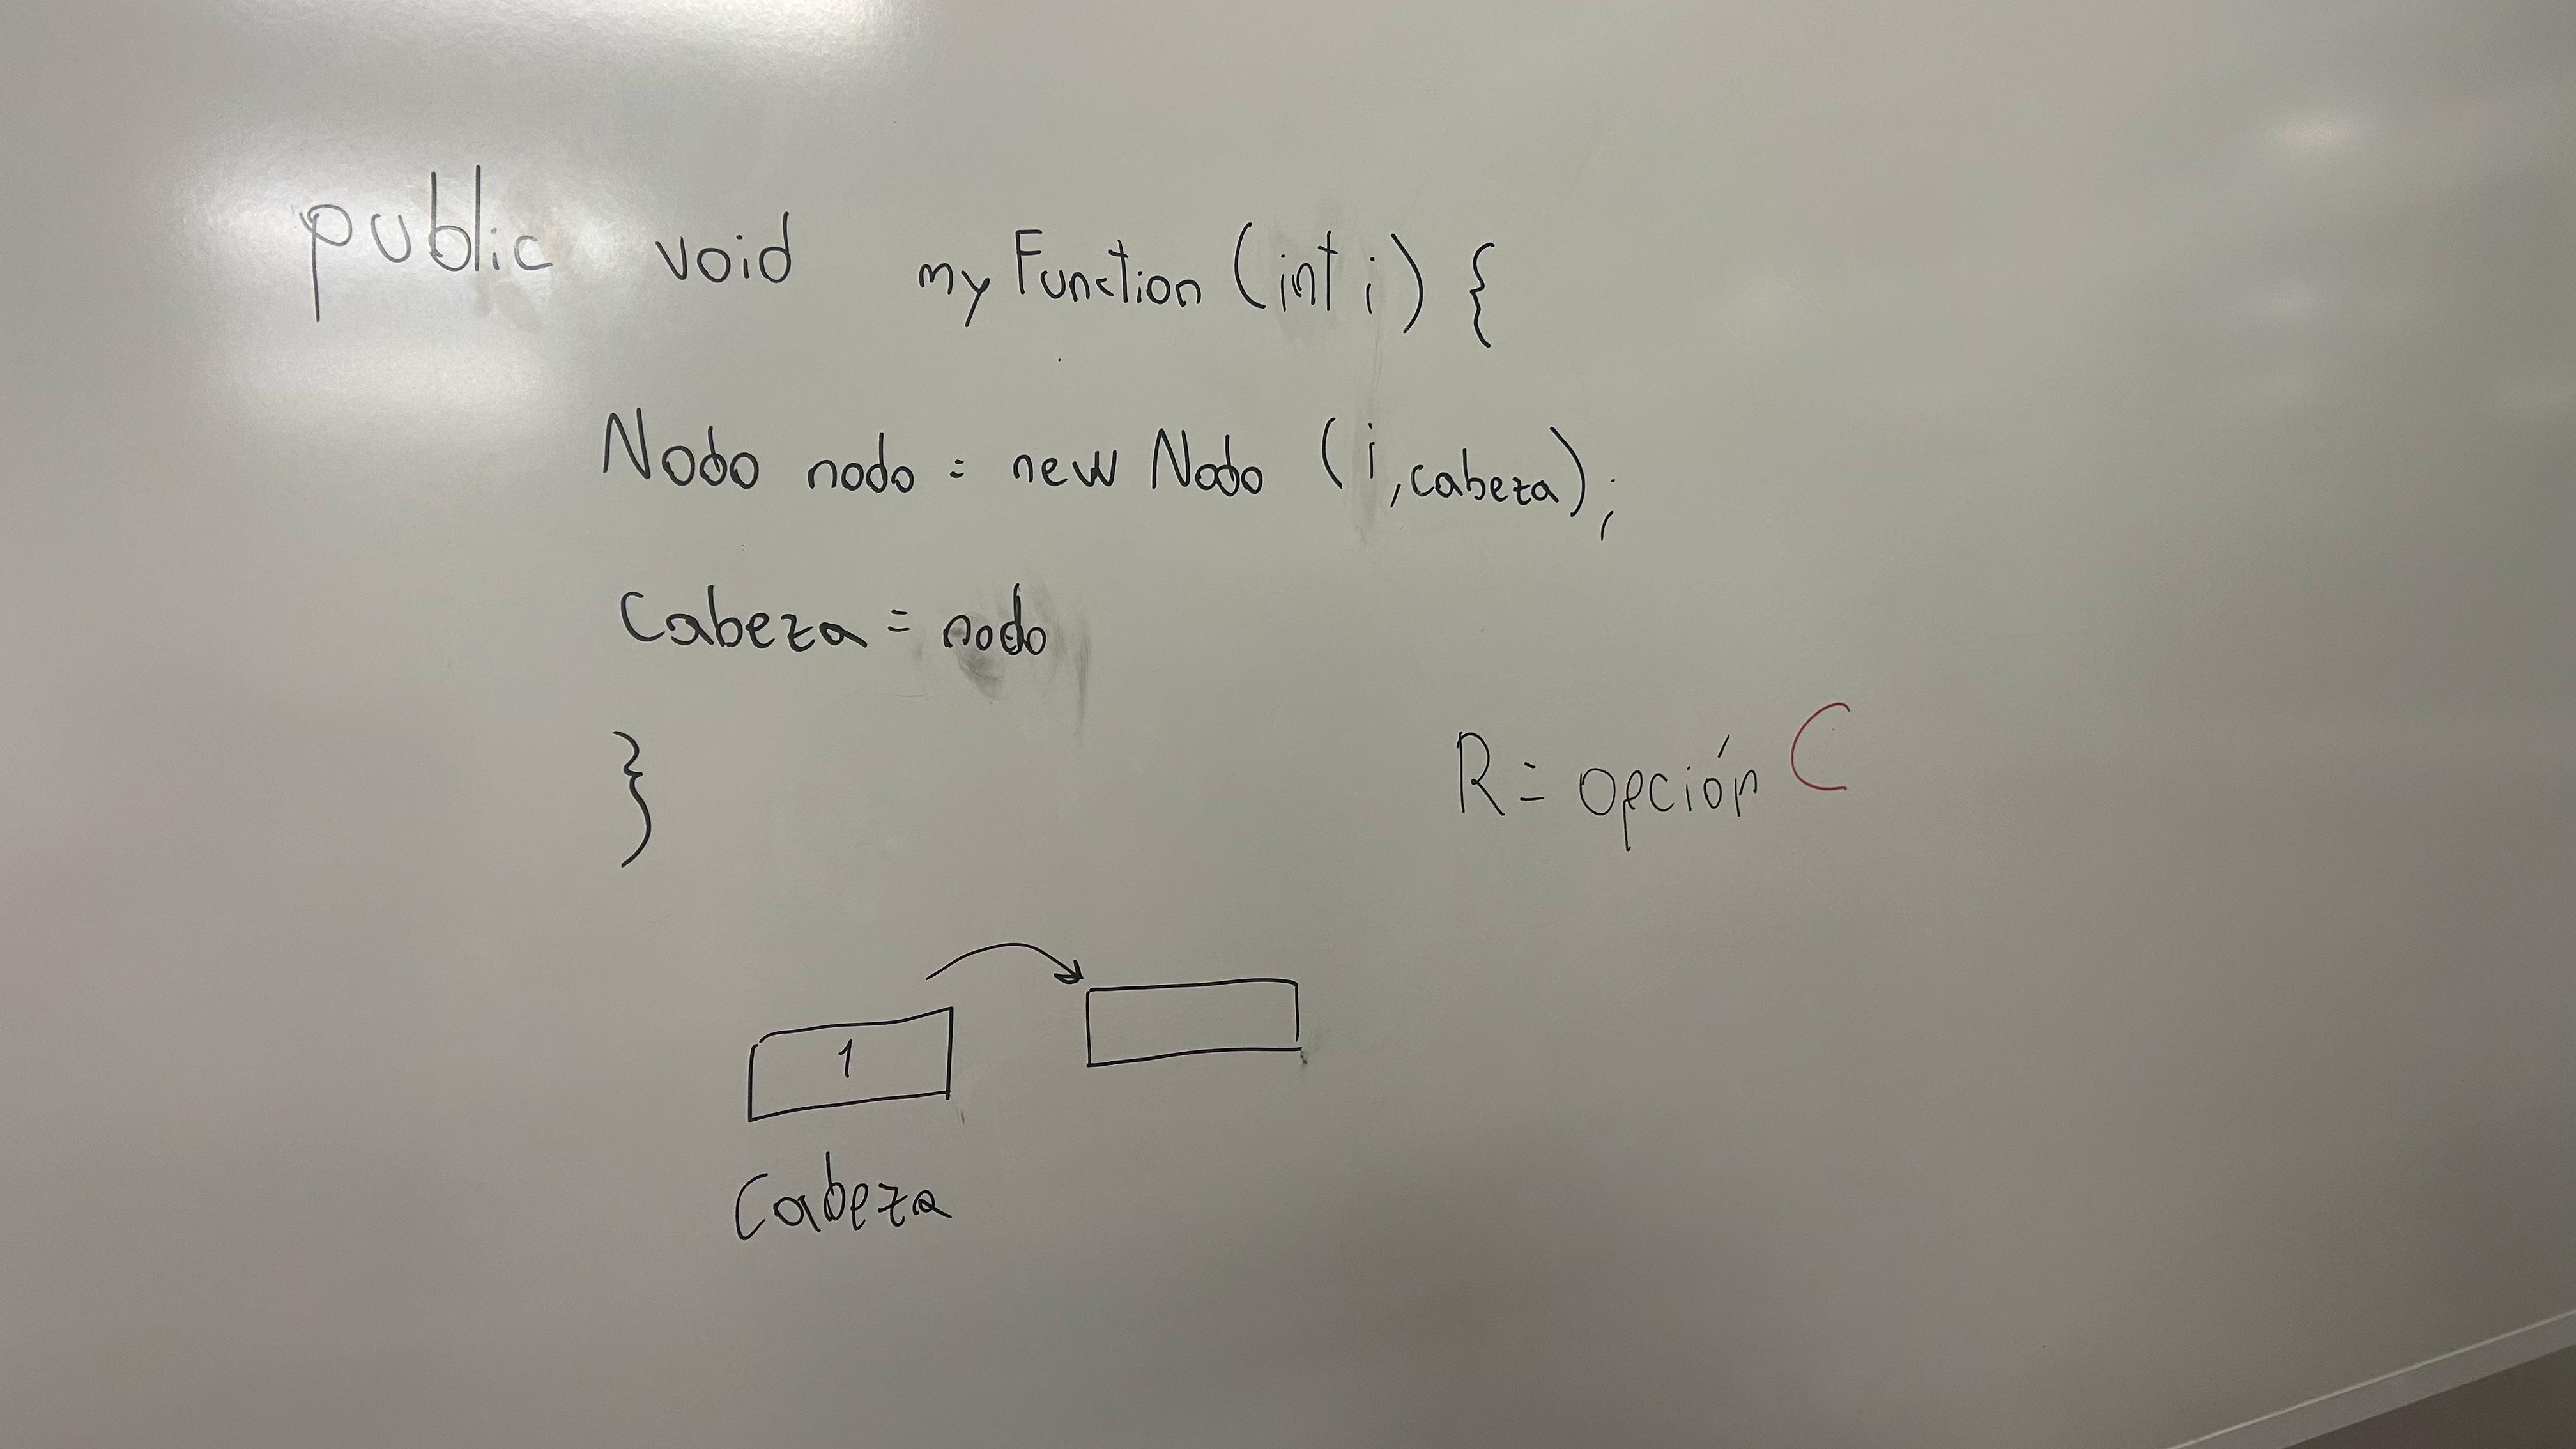 public void myFunction (int i) {
Nodo nodo = new Nodo (i, cabeza);
Cabeza = nodo
}
R = opción C
1
Cabeza